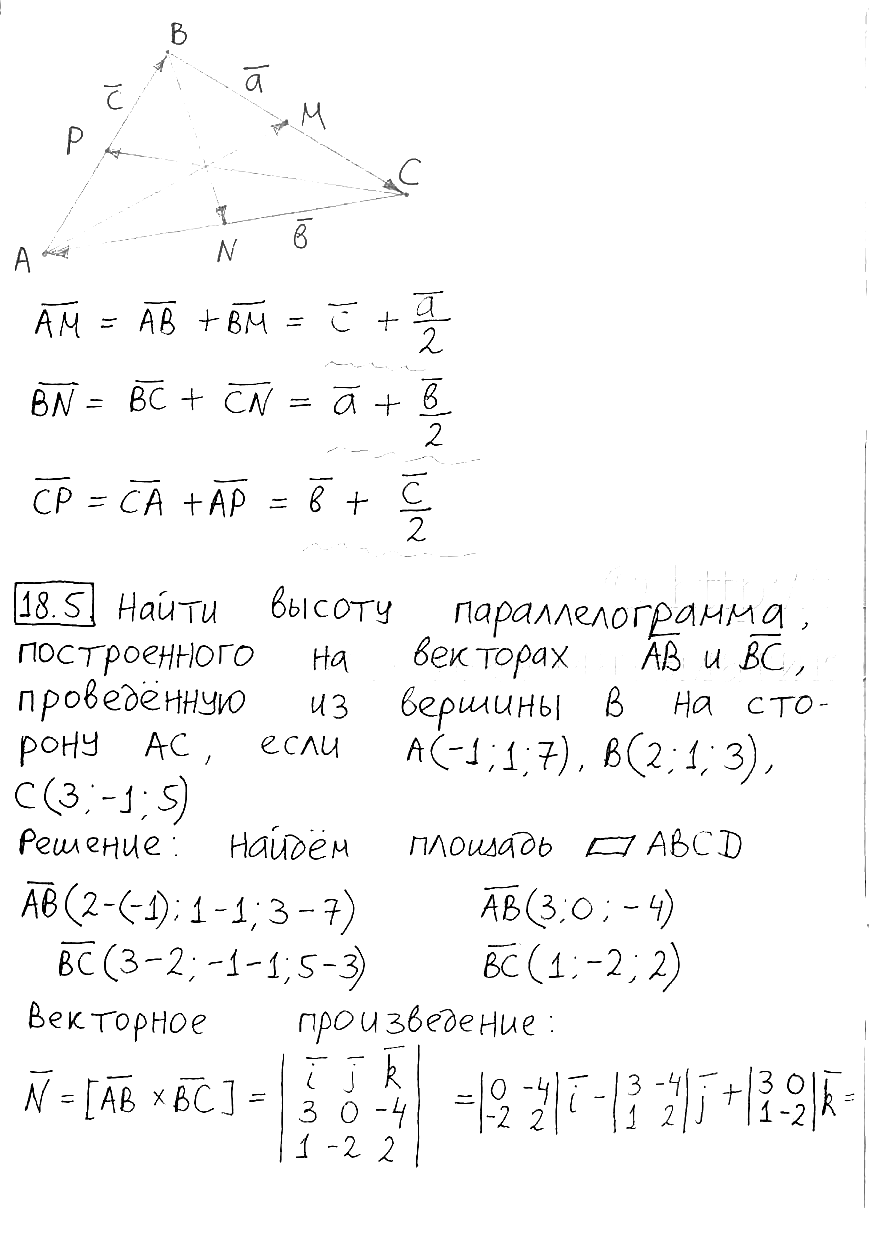 B
c̅
a̅
P
M
C
A
N
в̅
A̅M̅ = A̅B̅ + B̅M̅ = c̅ + a̅/2
B̅N̅ = B̅C̅ + C̅N̅ = a̅ + в̅/2
C̅P̅ = C̅A̅ + A̅P̅ = в̅ + c̅/2
18.5 Найти высоту параллелограмма,
построенного на векторах A̅B̅ и B̅C̅,
проведённую из вершины B на сто-
рону AC, если A(-1; 1; 7), B(2; 1; 3),
C(3; -1; 5)
Решение: Найдём площадь ▱ ABCD
A̅B̅(2-(-1); 1-1; 3-7) A̅B̅(3; 0; -4)
B̅C̅(3-2; -1-1; 5-3) B̅C̅(1; -2; 2)
Векторное произведение:
N̅ = [A̅B̅ × B̅C̅] = | i̅ j̅ k̅ | = |0 -4| i̅ - |3 -4| j̅ + |3 0| k̅ =
| 3 0 -4 | |-2 2| |1 2| |1 -2|
| 1 -2 2 |